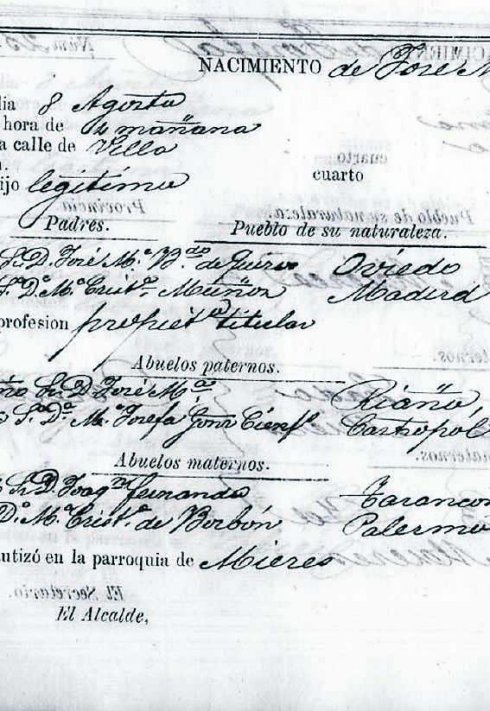 NACIMIENTO de José M
dia 8 Agosto
hora de 4 mañana
a calle de Villa
cuarto
ijo legitimo
Padres. Pueblo de su naturaleza.
Sr. D. José M.ª B.do de Quiros Oviedo
S.ª D.ª M.ª Crist.ª Muñoz Madrid
profesion propiet.º titular
Abuelos paternos.
Sr. D. José M.ª Riaño,
S.ª D.ª M.ª Josefa Gonz Cienf.s Castropól
Abuelos maternos.
Sr. D. Joaq.n Fernando Tarancon
D.ª M.ª Crist.ª de Borbón Palermo
utizó en la parroquia de Mieres
El Secretario.
El Alcalde,